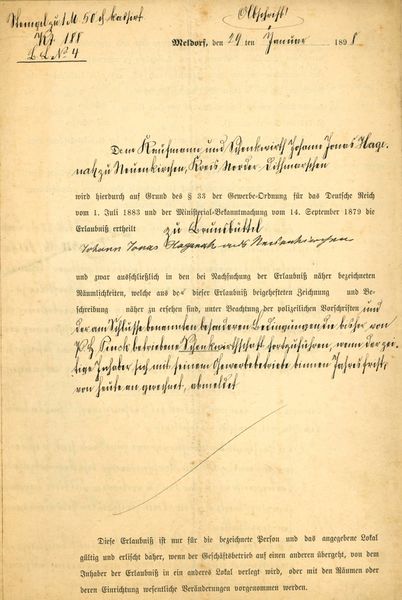 Stempel zu 1 M 50 ch kassirt
Abschrift!
Kf 188
L. L. No 4
Meldorf, den 29 ten Januar 1898.
Dem Kaufmann und Schenkwirth Johann Jonas Hage-
nah zu Neuenkirchen, Kreis Norder-Dithmarschen
wird hierdurch auf Grund des § 33 der Gewerbe-Ordnung für das Deutsche Reich
vom 1. Juli 1883 und der Ministerial-Bekanntmachung vom 14. September 1879 die
Erlaubniß ertheilt zu Brunsbüttel
Johann Jonas Hagenah aus Neuenkirchen
und zwar ausschließlich in den bei Nachsuchung der Erlaubniß näher bezeichneten
Räumlichkeiten, welche aus der dieser Erlaubniß beigehefteten Zeichnung und Be-
schreibung näher zu ersehen sind, unter Beachtung der polizeilichen Vorschriften und
der am Schlusse benannten besonderen Bedingungen die bisher von
P. H. betriebene Schenkwirthschaft fortzuführen, wenn der zei-
tige Inhaber sich mit seinem Gewerbebetriebe binnen Jahresfrist,
von heute an gerechnet, abmeldet
Diese Erlaubniß ist nur für die bezeichnete Person und das angegebene Lokal
gültig und erlischt daher, wenn der Geschäftsbetrieb auf einen anderen übergeht, von dem
Inhaber der Erlaubniß in ein anderes Lokal verlegt wird, oder mit den Räumen oder
deren Einrichtung wesentliche Veränderungen vorgenommen werden.